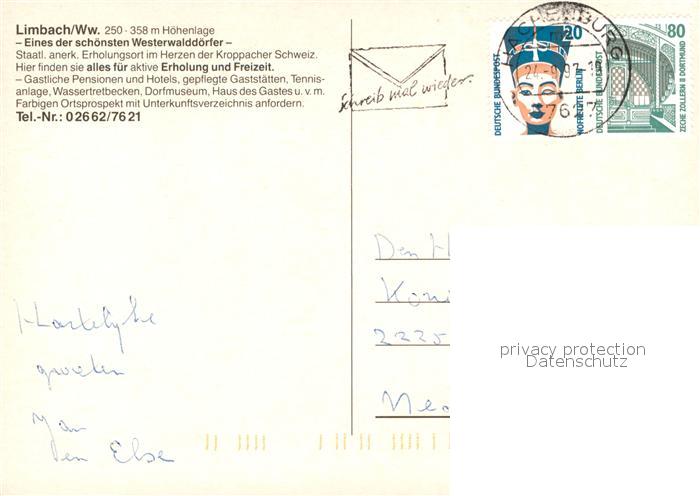 Limbach/Ww. 250 - 358 m Höhenlage
– Eines der schönsten Westerwalddörfer –
Staatl. anerk. Erholungsort im Herzen der Kroppacher Schweiz.
Hier finden sie alles für aktive Erholung und Freizeit.
– Gastliche Pensionen und Hotels, gepflegte Gaststätten, Tennis-
anlage, Wassertretbecken, Dorfmuseum, Haus des Gastes u. v. m.
Farbigen Ortsprospekt mit Unterkunftsverzeichnis anfordern.
Tel.-Nr.: 0 26 62/76 21
Schreib mal wieder.
HACHENBURG
20
DEUTSCHE BUNDESPOST
NOFRETETE BERLIN
80
DEUTSCHE BUNDESPOST
ZECHE ZOLLERN II DORTMUND
Den H
Koni
2225
Ne
Hartelijke
groeten
Jan
en Else
privacy protection
Datenschutz